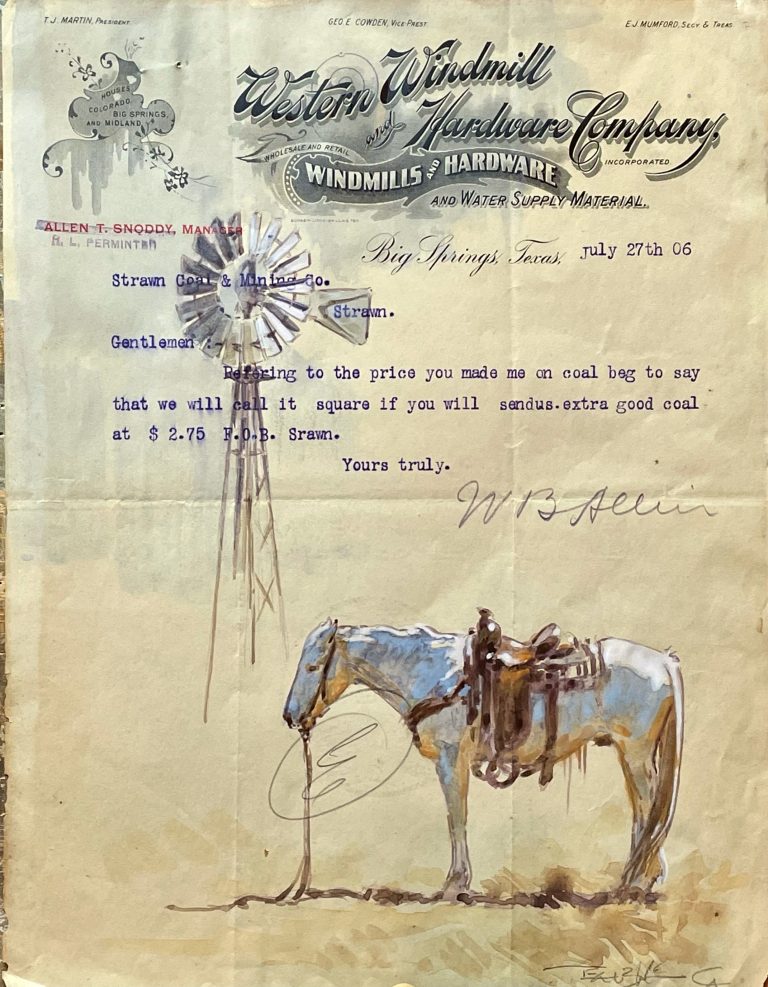 T. J. MARTIN, PRESIDENT.
GEO. E. COWDEN, VICE-PREST.
E. J. MUMFORD, SECY. & TREAS.
HOUSES
COLORADO,
BIG SPRINGS,
AND MIDLAND.
Western Windmill
and Hardware Company,
INCORPORATED
WHOLESALE AND RETAIL
WINDMILLS AND HARDWARE
AND WATER SUPPLY MATERIAL.
ALLEN T. SNODDY, MANAGER
R. L. PERMINTER
Big Springs, Texas, July 27th 06
Strawn Coal & Mining Co.
Strawn.
Gentlemen :-
Refering to the price you made me on coal beg to say
that we will call it square if you will sendus.extra good coal
at $ 2.75 F.O.B. Srawn.
Yours truly.
W B Allin